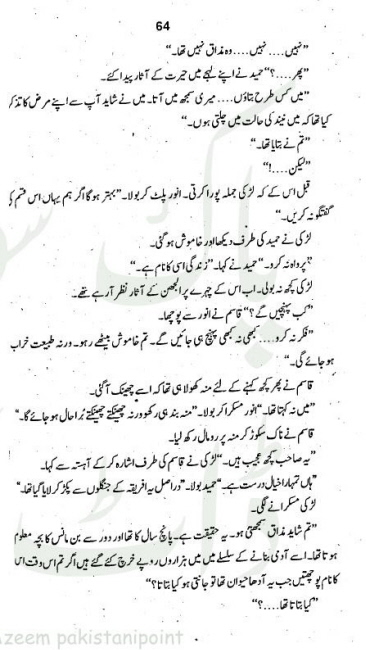 64
”نہیں.... نہیں.... وہ مذاق نہیں تھا۔“
”پھر....؟“ حمید نے اپنے لہجے میں حیرت کے آثار پیدا کئے۔
”میں کس طرح بتاؤں.... میری سمجھ میں نہیں آتا۔ میں نے شاید آپ سے اپنے مرض کا تذکر
کیا تھا کہ میں نیند کی حالت میں چلتی ہوں۔“
”تم نے بتایا تھا۔“
”لیکن....!“
قبل اس کے کہ لڑکی جملہ پورا کرتی۔ انور پلٹ کر بولا۔ ”بہتر ہوگا اگر ہم یہاں اس قسم کی
گفتگو نہ کریں۔“
لڑکی نے حمید کی طرف دیکھا اور خاموش ہوگئی۔
”پرواہ نہ کرو۔“ حمید نے کہا۔ ”زندگی اسی کا نام ہے۔“
لڑکی کچھ نہ بولی۔ اب اس کے چہرے پر الجھن کے آثار نظر آرہے تھے۔
”کب پہنچیں گے؟“ قاسم نے انور سے پوچھا۔
”فکر نہ کرو.... کبھی نہ کبھی پہنچ ہی جائیں گے۔ تم خاموش بیٹھے رہو۔ ورنہ طبیعت خراب
ہوجائے گی۔“
قاسم نے پھر کچھ کہنے کے لئے منہ کھولا ہی تھا کہ اسے چھینک آگئی۔
”میں نہ کہتا تھا۔“ انور مسکرا کر بولا۔ ”منہ بند ہی رکھو ورنہ چھینکتے چھینکتے بُرا حال ہوجائے گا۔“
قاسم نے ناک سکوڑ کر منہ پر رومال رکھ لیا۔
”یہ صاحب کچھ عجیب ہیں۔“ لڑکی نے قاسم کی طرف اشارہ کر کے آہستہ سے کہا۔
”ہاں تمہارا خیال درست ہے۔“ حمید بولا۔ ”دراصل یہ افریقہ کے جنگلوں سے پکڑ کر لایا گیا تھا۔“
لڑکی مسکرانے لگی۔
”تم شاید مذاق سمجھتی ہو۔ یہ حقیقت ہے۔ پانچ سال کا تھا اور دور سے بن مانس کا بچہ معلوم
ہوتا تھا۔ اسے آدمی بنانے کے سلسلے میں میں ہزاروں روپے خرچ کئے گئے ہیں اگر تم اس وقت اس
کا نام پوچھتیں جب یہ آدھا حیوان تھا تو جانتی ہو کیا بتاتا؟“
”کیا بتاتا تھا....؟“
Azeem pakistanipoint